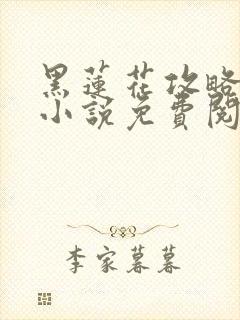 黑蓮花攻略
小說免費閱
李家暮暮